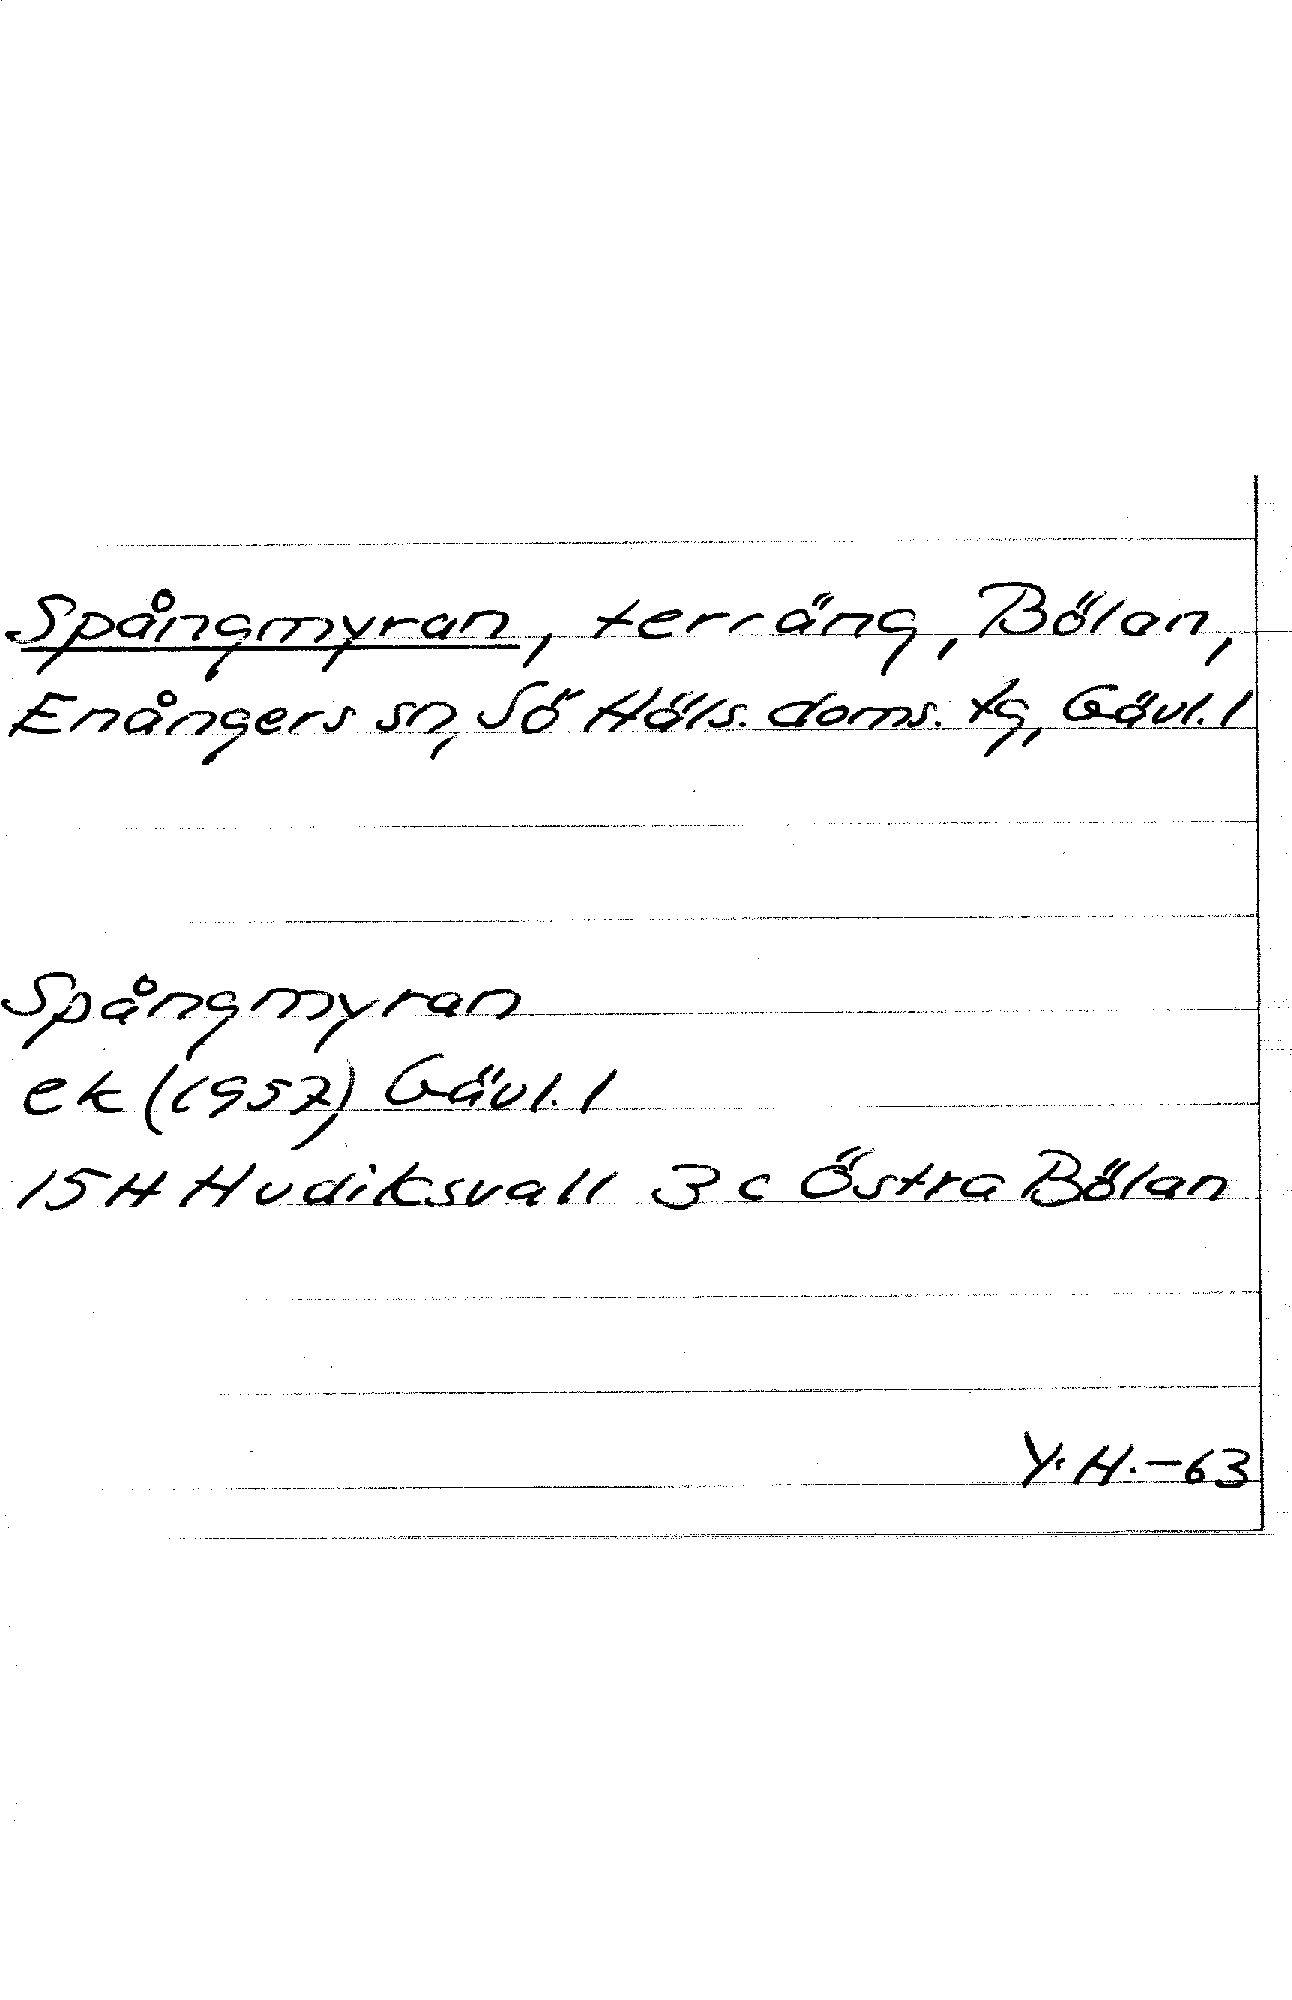 Spångmyran, terräng, Bölan,
Enångers sn, Sö Häls. doms. tg, Gävl. l
Spångmyran
ek (1957) Gävl. l
15 H Hudiksvall 3 c Östra Bölan
Y. H. - 63